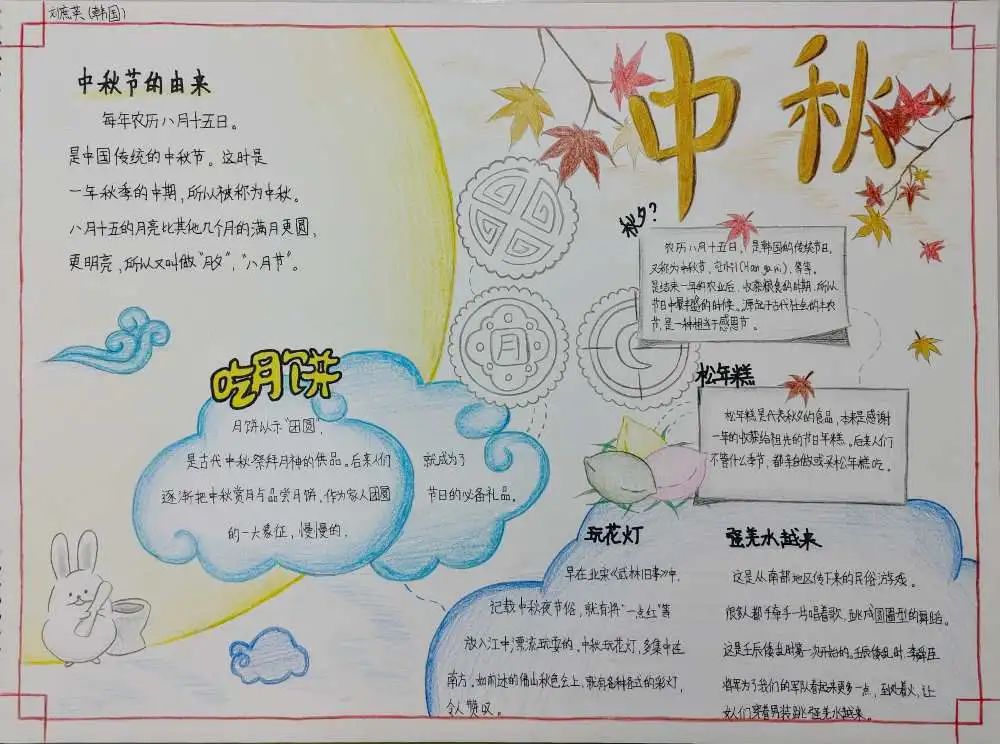 刘庶英(韩国)
中秋
中秋节的由来
每年农历八月十五日。
是中国传统的中秋节。这时是
一年秋季的中期,所以被称为中秋。
八月十五的月亮比其他几个月的满月更圆,
更明亮,所以又叫做"月夕","八月节"。
秋夕?
农历八月十五日,是韩国的传统节日,
又称为中秋节, 한가위(Han ga wi), 等等。
是结束一年的农业后,收获粮食的时期,所以
节日中最丰盛的时候。源起于古代社会的丰农
节,是一种相当于感恩节。
月
松年糕
松年糕是代表秋夕的食品,本来是感谢
一年的收获给祖先的节日年糕。后来人们
不管什么季节,都亲自做或买松年糕吃。
吃月饼
月饼以示"团圆",
是古代中秋祭拜月神的供品。后来人们
逐渐把中秋赏月与品尝月饼,作为家人团圆
的一大象征,慢慢的,
就成为了
节日的必备礼品。
玩花灯
早在北宋《武林旧事》中,
记载中秋夜节俗,就有将"一点红"等
放入江中漂流玩耍的。中秋玩花灯,多集中在
南方。如前述的佛山秋色会上,就有各种各式的彩灯,
令人赞叹。
强羌水越来
这是从南部地区传下来的民俗游戏。
很多人都手牵手一片唱着歌,跳成圆圈型的舞蹈。
这是壬辰倭乱时第一次开始的。壬辰倭乱时,李舜臣
将军为了我们的军队看起来更多一点,到处着火,让
女人们穿着男装跳强羌水越来。